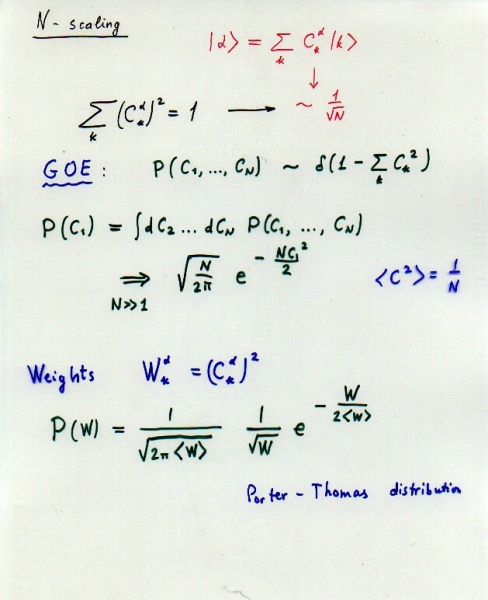 N - scaling
|α> = Σ_k C_k^α |k>
↓
Σ_k (C_k^α)² = 1 ⟶ ~ 1/√N
GOE: P(C₁, ..., C_N) ~ δ(1 - Σ_k C_k²)
P(C₁) = ∫dC₂ ... dC_N P(C₁, ..., C_N)
⇒ √(N/2π) e^(- NC₁²/2) <C²> = 1/N
N>>1
Weights W_k^α = (C_k^α)²
P(W) = 1/√(2π<W>) 1/√W e^(- W/2<W>)
Porter - Thomas distribution